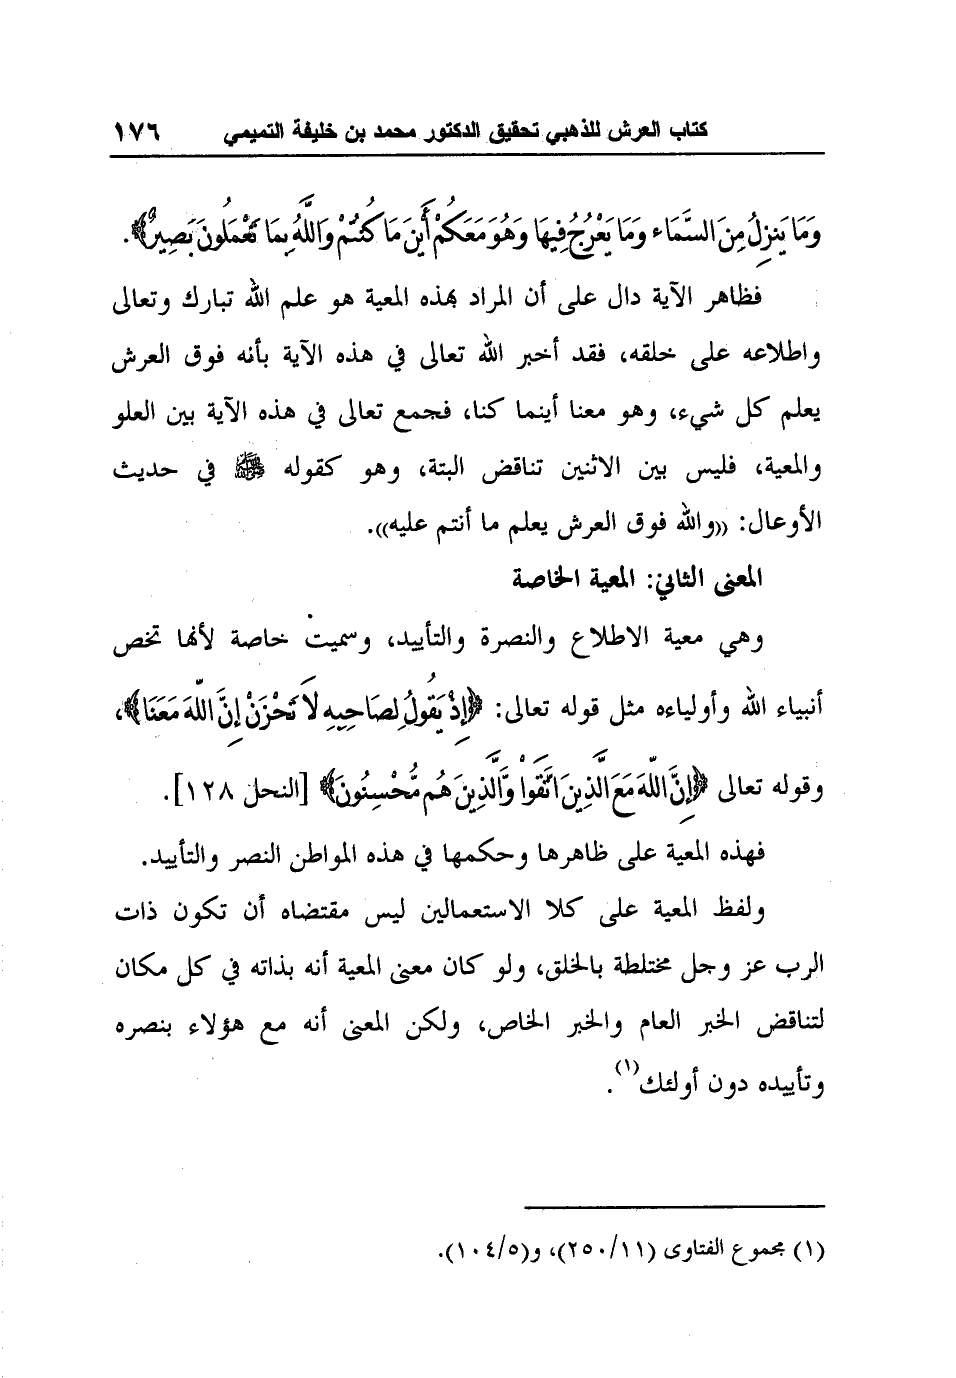 كتاب العرش للذهبي تحقيق الدكتور محمد بن خليفة التميمي ١٧٦
وَمَا يَنزِلُ مِنَ السَّمَاء وَمَا يَعْرُجُ فِيهَا وَهُوَ مَعَكُمْ أَيْنَ مَا كُنتُمْ وَاللَّهُ بِمَا تَعْمَلُونَ بَصِيرٌ﴾.
فظاهر الآية دال على أن المراد بهذه المعية هو علم الله تبارك وتعالى
واطلاعه على خلقه، فقد أخبر الله تعالى في هذه الآية بأنه فوق العرش
يعلم كل شيء، وهو معنا أينما كنا، فجمع تعالى في هذه الآية بين العلو
والمعية، فليس بين الاثنين تناقض البتة، وهو كقوله ﷺ في حديث
الأوعال: ((والله فوق العرش يعلم ما أنتم عليه)).
المعنى الثاني: المعية الخاصة
وهي معية الاطلاع والنصرة والتأييد، وسميت خاصة لأنها تخص
أنبياء الله وأولياءه مثل قوله تعالى: ﴿إِذْ يَقُولُ لِصَاحِبِهِ لاَ تَحْزَنْ إِنَّ اللَّهَ مَعَنَا﴾،
وقوله تعالى ﴿إِنَّ اللَّهَ مَعَ الَّذِينَ اتَّقَواْ وَّالَّذِينَ هُم مُّحْسِنُونَ﴾ [النحل ١٢٨].
فهذه المعية على ظاهرها وحكمها في هذه المواطن النصر والتأييد.
ولفظ المعية على كلا الاستعمالين ليس مقتضاه أن تكون ذات
الرب عز وجل مختلطة بالخلق، ولو كان معنى المعية أنه بذاته في كل مكان
لتناقض الخبر العام والخبر الخاص، ولكن المعنى أنه مع هؤلاء بنصره
وتأييده دون أولئك(١).
(١) مجموع الفتاوى (٢٥٠/١١)، و(١٠٤/٥).